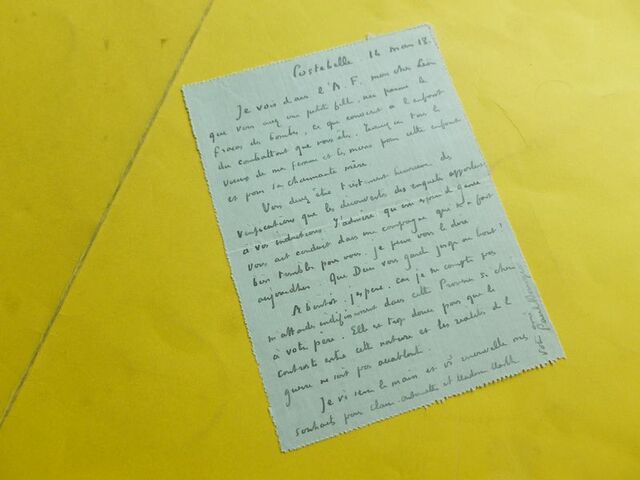 Costebelle 14 mars 18.
Je vois dans l'A. F. mon cher Léon
que vous avez une petite fille, née parmi le
fracas des bombes, ce qui convient à l'enfant
du combattant que vous êtes. tous les
vœux de ma femme et les miens pour cette enfant
et pour sa charmante mère.
Vous devez être heureux des
vérifications que les découvertes des enquêtes apportent
à vos inductions. J'admire qu'un
vous ait conduit dans une campagne qui m'a fait
bien trembler pour vous. je peux vous le dire
aujourd'hui. Que Dieu vous garde jusqu'au bout !
A bientôt j'espère. car je ne compte pas
m'attarder indéfiniment dans cette Provence si chère
à votre père. Elle est trop douce pour que le
contraste entre cette nature et les réalités de la
guerre ne soit pas accablant.
Je vous serre la main et vous renouvelle mes
souhaits pour et Madame
votre Paul Bourget